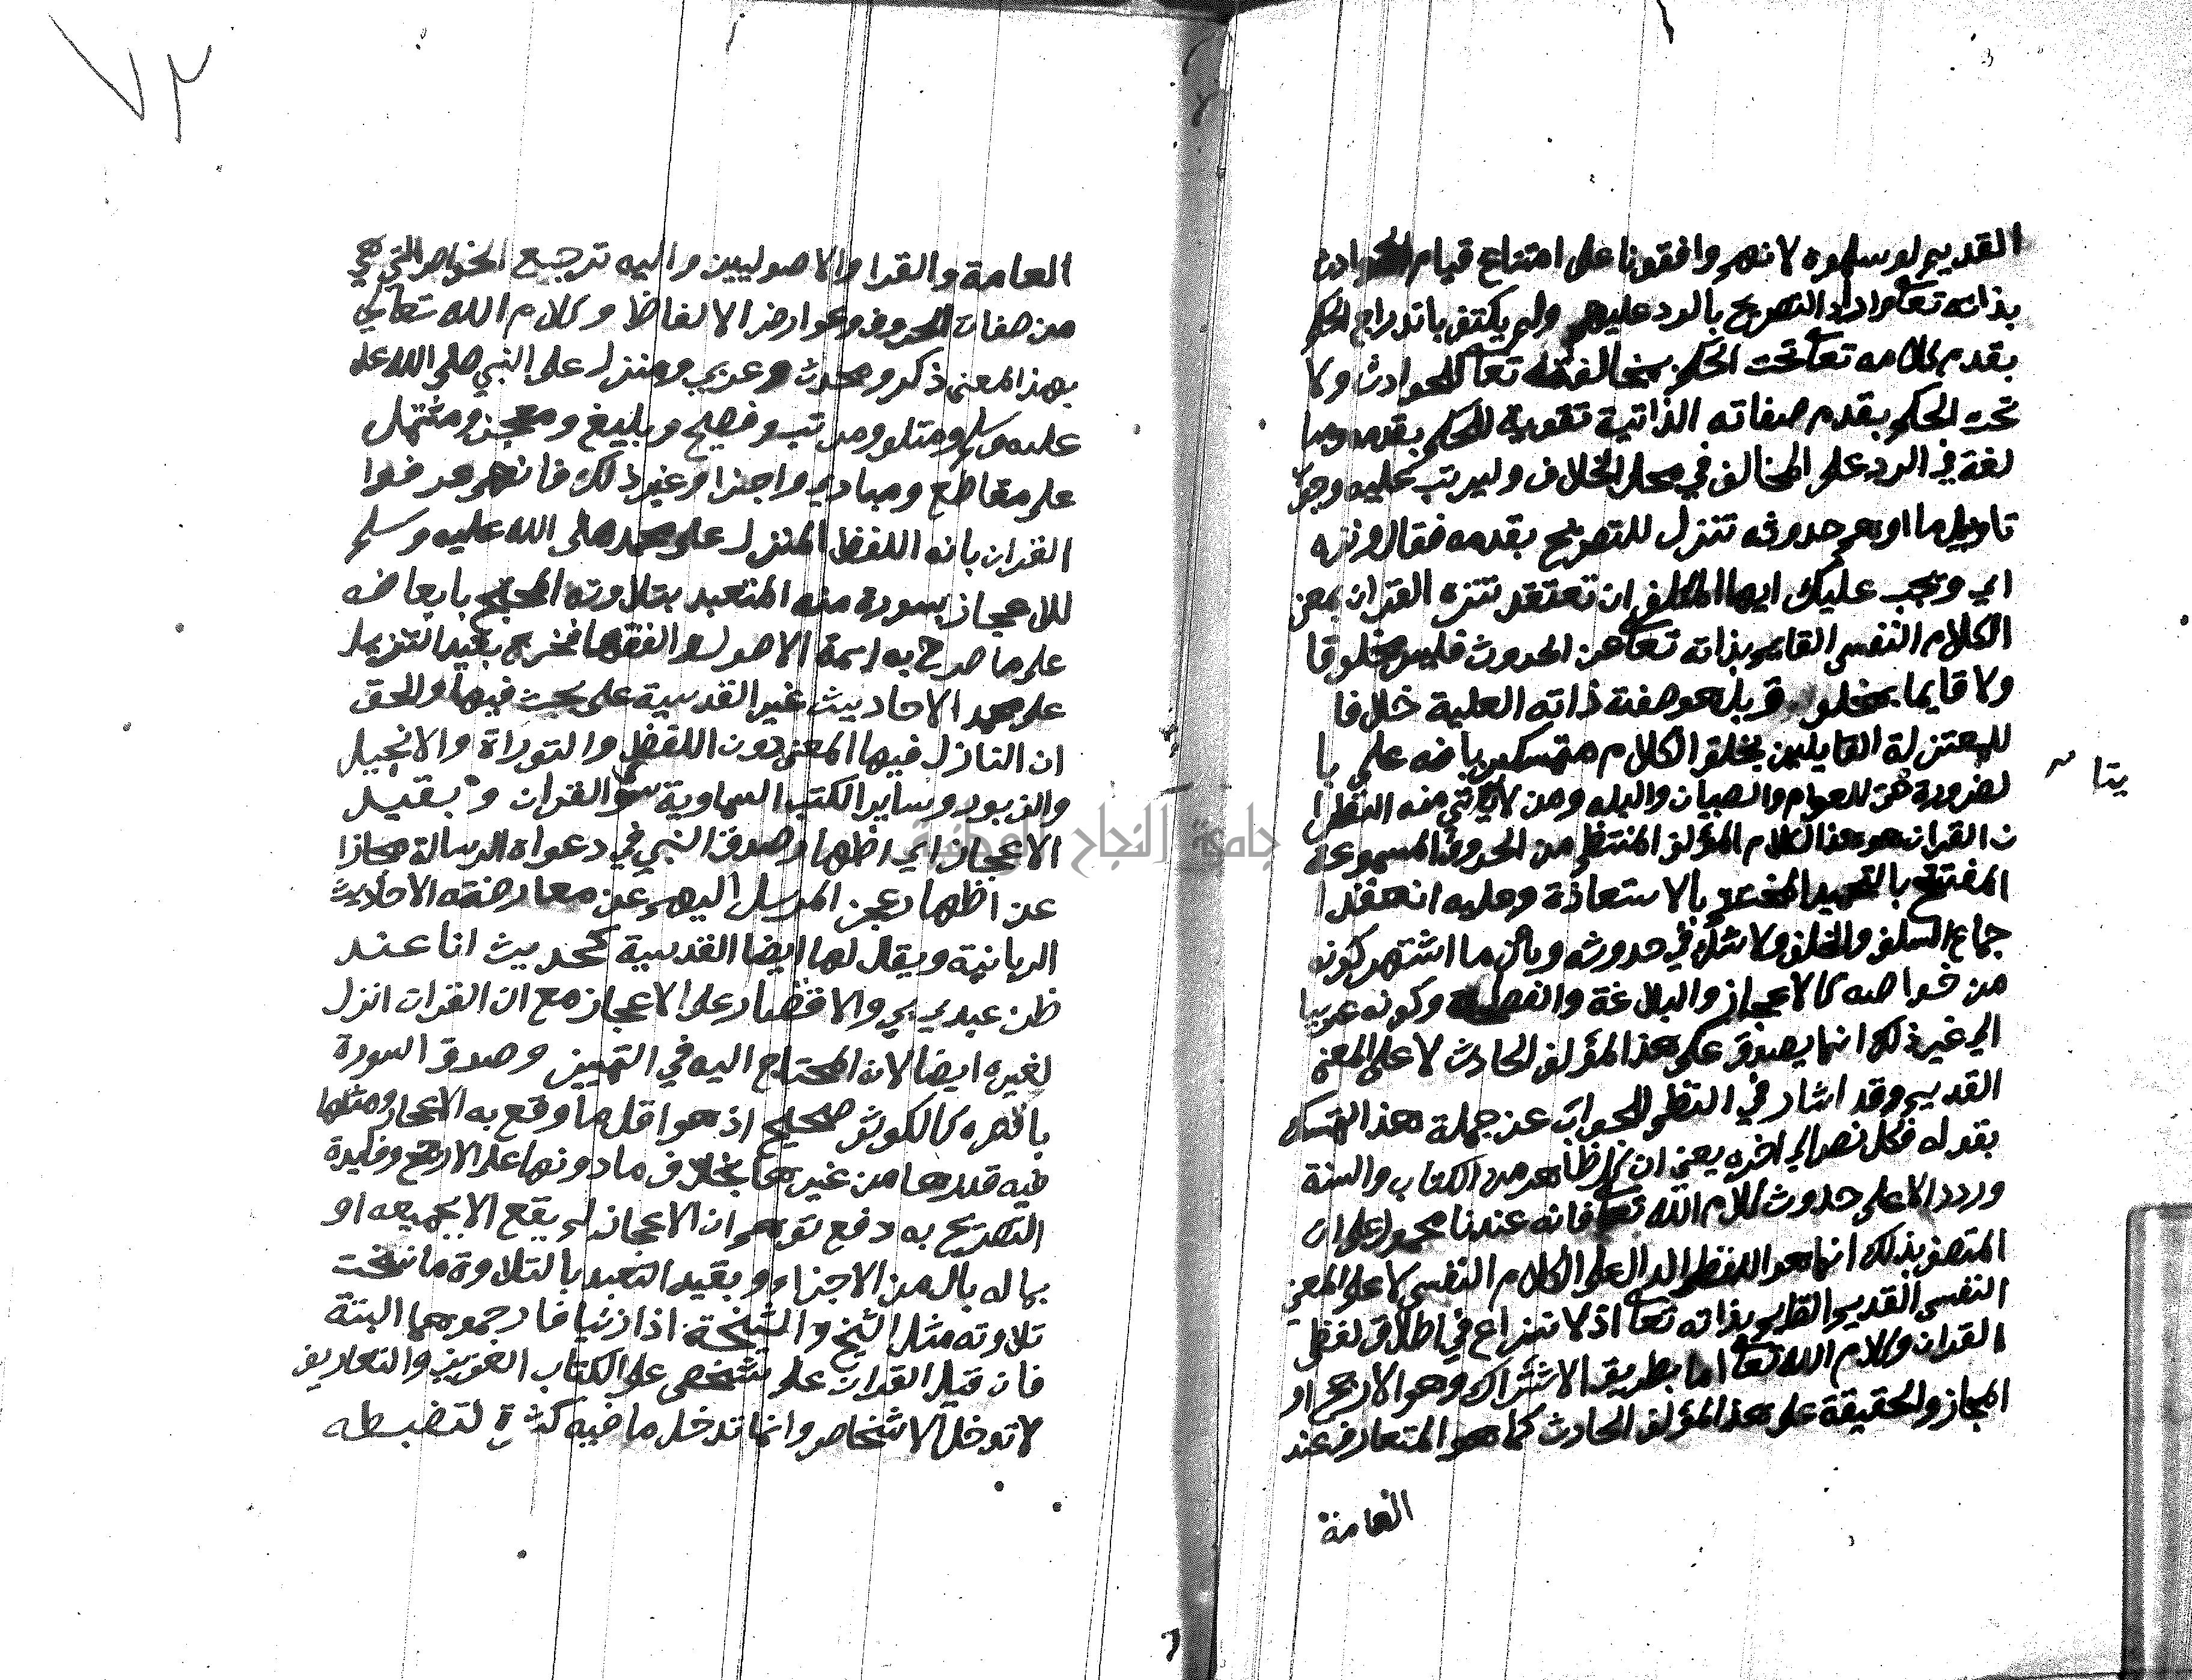 القديم لو سلموه لانهم وافقونا على امتناع قيام الحوادث
بذاته تعا واراد التصريح بالرد عليهم ولم يكتف باندراج الحكم
بقدم كلامه تعا تحت الحكم بمخالفته تعا للحوادث ولا
تحت الحكم بقدم صفاته الذاتية تقوية للحكم بقدمه ومبا
لغة في الرد على المخالف في محل الخلاف وليرتب عليه وجوب
تاويل ما اوهم حدوثه تنزل للتصريح بقدمه فقال ونزه
اي ويجب عليك ايها المكلف ان تعتقد تنزه القران بمعنى
الكلام النفسي القايم بذاته تعا عن الحدوث فليس مخلوقا
ولا قايما بمخلوق بل هو صفة ذاته العلية خلافا
للمعتزلة القايلين بخلق الكلام متمسكين بانه علم با
لضرورة حتى للعوام والصبيان والبله ومن لا يتاتي منه النظر ا
ن القران هو هذا الكلام المؤلف المنتظم من الحروف المسموعة
المفتتح بالتحميد المختتم بالاستعاذة وعليه انعقد ا
جماع السلف والخلف ولا شك في حدوثه وبان ما اشتهر كونه
من خواصه كالاعجاز والبلاغة والفصاحة وكونه عربيا
الي غير ذلك انما يصدق على هذا المؤلف الحادث لا على المعنى
القديم وقد اشار في النظم للجواب عن جملة هذا التمسك
بقوله فكل نص الي اخره يعني ان كل ظاهر من الكتاب والسنة
ورد دالا على حدوث كلام الله تعا فانه عندنا محمول على ان
المتصف بذلك انما هو اللفظ الدال على الكلام النفسي لا على المعني
النفسي القديم القايم بذاته تعا اذ لا نزاع في اطلاق لفظ
القران وكلام الله تعا اما بطريق الاشتراك وهو الارجح او
المجاز والحقيقة على هذا المؤلف الحادث كما هو المتعارف عند
العامة
٧٣
العامة والقرا والاصوليين واليه ترجع الخواص التي هي
من صفات الحروف وعوارض الالفاظ وكلام الله تعالي
بهذا المعنى ذكر ومحدث وعربي ومنزل على النبي صلى الله عله
عليه وسلم ومتلو ومرتب وفصيح وبليغ ومعجز ومشتمل
على مقاطع ومبادي واجزا وغير ذلك فانهم عرفوا
القران بانه اللفظ المنزل على محمد صلى الله عليه وسلم
للاعجاز بسورة منه المتعبد بتلاوته المحتج بابعاضه
على ما صرح به ايمة الاصول والفقها فخرج بقيد التنزيل
على محمد الاحاديث غير القدسية على بحث فيها والحق
ان النازل فيها المعنى دون اللفظ والتوراة والانجيل
والزبور وساير الكتب السماوية سوى القران وبقيد
الاعجاز اي اظهار صدق النبي في دعواه الرسالة مجازا
عن اظهار عجز المرسل اليهم عن معارضته الاحاديث
الربانية ويقال لها ايضا القدسية كحديث انا عند
ظن عبدي بي والاقتصار على الاعجاز مع ان القران انزل
لغيره ايضا لانه المحتاج اليه في التمييز وصدق السورة
باقصره كالكوثر صحيح اذ هو اقل ما وقع به الاعجاز ومثلها
فيه قدرها من غيرها بخلاف ما دونها على الارجح وفايدة
التصريح به دفع توهم ان الاعجاز لم يقع الا بجميعه او
بما له بال من الاجزاء وبقيد التعبد بالتلاوة ما نسخت
تلاوته مثل الشيخ والشيخة اذا زنيا فارجموهما البتة
فان قيل القران علم شخص على الكتاب العزيز والتعاريف
لا تدخل الاشخاص وانما تدخل ما فيه كثرة لتضبطه
يتا
جامعة النجاح الوطنية